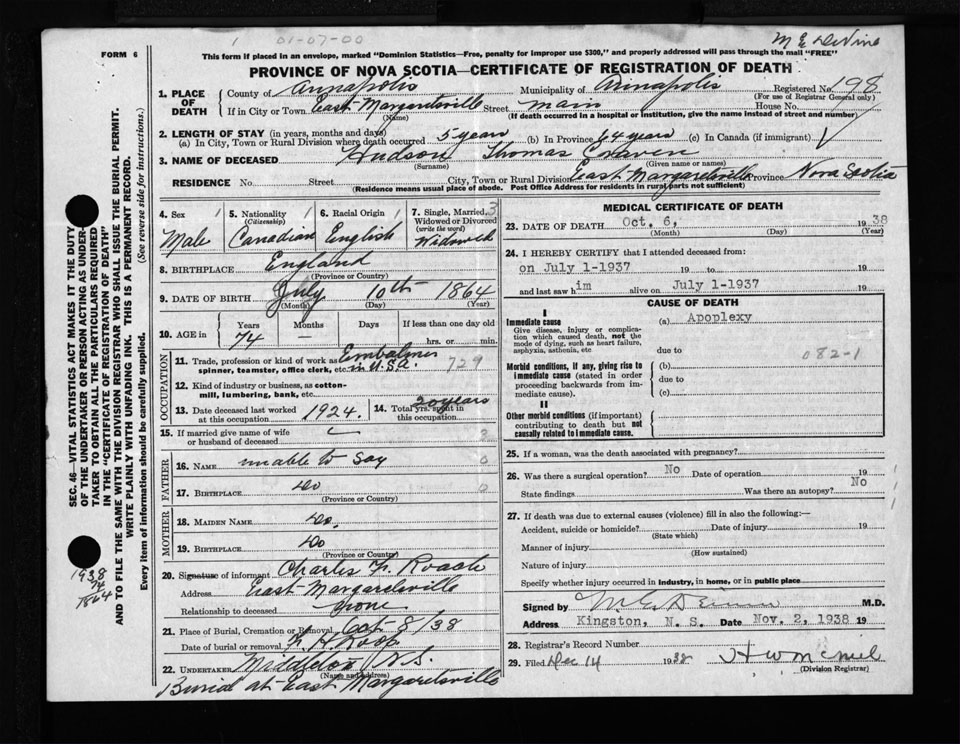 1 01-07-00
M E DeVine
FORM 6
This form if placed in an envelope, marked "Dominion Statistics—Free, penalty for improper use $300," and properly addressed will pass through the mail "FREE"
PROVINCE OF NOVA SCOTIA—CERTIFICATE OF REGISTRATION OF DEATH
1. PLACE OF DEATH
County of Annapolis Municipality of Annapolis Registered No. 198
(For use of Registrar General only)
If in City or Town East Margaretsville Street main House No.
(Name) (If death occurred in a hospital or institution, give the name instead of street and number)
2. LENGTH OF STAY (in years, months and days)
(a) In City, Town or Rural Division where death occurred 5 years (b) In Province 64 years (c) In Canada (if immigrant)
3. NAME OF DECEASED Hudson Thomas Craven
(Surname) (Given name or names)
RESIDENCE No. Street City, Town or Rural Division East Margaretsville Province Nova Scotia
(Residence means usual place of abode. Post Office Address for residents in rural parts not sufficient)
4. Sex 1 5. Nationality 1 6. Racial Origin 1 7. Single, Married, 3
(Citizenship) Widowed or Divorced
(write the word)
Male Canadian English Widower
8. BIRTHPLACE England
(Province or Country)
9. DATE OF BIRTH July 10th 1864
(Month) (Day) (Year)
10. AGE in Years Months Days If less than one day
74 — hrs. or min.
OCCUPATION
11. Trade, profession or kind of work as Embalmer
spinner, teamster, office clerk, etc. in U.S.A. 729
12. Kind of industry or business, as cotton-
mill, lumbering, bank, etc.
13. Date deceased last worked at this occupation 1924. 14. Total yrs. spent in this occupation 20 years
15. If married give name of wife
or husband of deceased 2
FATHER
16. NAME unable to say 0
17. BIRTHPLACE Do 0
(Province or Country)
MOTHER
18. MAIDEN NAME Do.
19. BIRTHPLACE Do
(Province or Country)
20. Signature of informant Charles F. Roach
Address East Margaretsville
Relationship to deceased none
21. Place of Burial, Cremation or Removal Oct 8/38
Date of burial or removal F. H. Roop
22. UNDERTAKER Middleton N.S.
(Name and address)
Burial at East Margaretsville
MEDICAL CERTIFICATE OF DEATH
23. DATE OF DEATH Oct. 6, 1938
(Month) (Day) (Year)
24. I HEREBY CERTIFY that I attended deceased from:
on July 1-1937 19 to 19
and last saw him alive on July 1-1937
CAUSE OF DEATH
I
Immediate cause (a) Apoplexy
Give disease, injury or complica-
tion which caused death, not the
mode of dying, such as heart failure,
asphyxia, asthenia, etc due to
082-1
Morbid conditions, if any, giving rise to (b)
immediate cause (stated in order due to
proceeding backwards from im-
mediate cause). (c)
II
Other morbid conditions (if important)
contributing to death but not
causally related to immediate cause.
25. If a woman, was the death associated with pregnancy?
26. Was there a surgical operation? No Date of operation 19
State findings Was there an autopsy? No
27. If death was due to external causes (violence) fill in also the following:—
Accident, suicide or homicide? Date of injury 19
(State which)
Manner of injury
(How sustained)
Nature of injury
Specify whether injury occurred in industry, in home, or in public place
Signed by M.E. DeVine M.D.
Address Kingston, N. S. Date Nov. 2, 1938 19
28. Registrar's Record Number
29. Filed Dec 14 1938
(Division Registrar)
SEC. 46—VITAL STATISTICS ACT MAKES IT THE DUTY
OF THE UNDERTAKER OR PERSON ACTING AS UNDER-
TAKER TO OBTAIN ALL THE PARTICULARS REQUIRED
IN THE "CERTIFICATE OF REGISTRATION OF DEATH"
AND TO FILE THE SAME WITH THE DIVISION REGISTRAR WHO SHALL ISSUE THE BURIAL PERMIT.
WRITE PLAINLY WITH UNFADING INK. THIS IS A PERMANENT RECORD.
Every item of information should be carefully supplied. (See reverse side for instructions.)
1938
74
1864